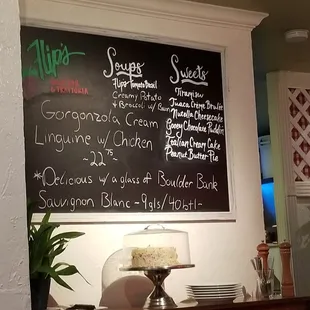 Flip's
Soups
Flip's Tomato Basil
Creamy Potato
+ Broccoli w/ Bacon
Sweets
Tiramisu
Tuaca Crème Brulee
Nutella Cheesecake
Gooey Chocolate Pudding
Italian Cream Cake
Peanut Butter Pie
Gorgonzola Cream
Linguine w/ Chicken
- 22 75 -
*Delicious w/ a glass of Boulder Bank
Sauvignon Blanc - 9gls/40btl -